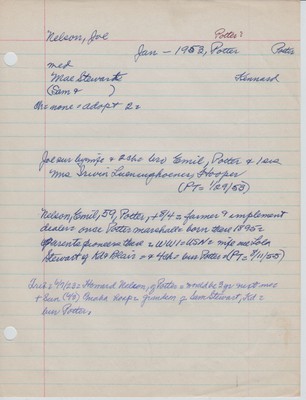 Potter?
Nelson, Joe
Jan - 1953, Potter
Potter
med
Mae Stewart
Kennard
(Sam & )
no none = adopt 2 =
Joe sur by wife & 2 sho bro Emil, Potter & 1 sis
Mrs Irvin Luenninghoener, Hooper
(PT = 1/29/53)
Nelson, Emil, 59, Potter, + 3/4 = farmer & implement
dealer once Potter marshall = born there 1895 =
parents pioneers there = WW I = USN = wife nee Lola
Stewart of Kd & Blair = & 4 sho bur Potter = (PT = 3/11/55)
4/1/23 = Howard Nelson, of Potter = would be 3 yr
(48) Omaha hosp = grandson of Sam Stewart, Kd =
bur Potter,